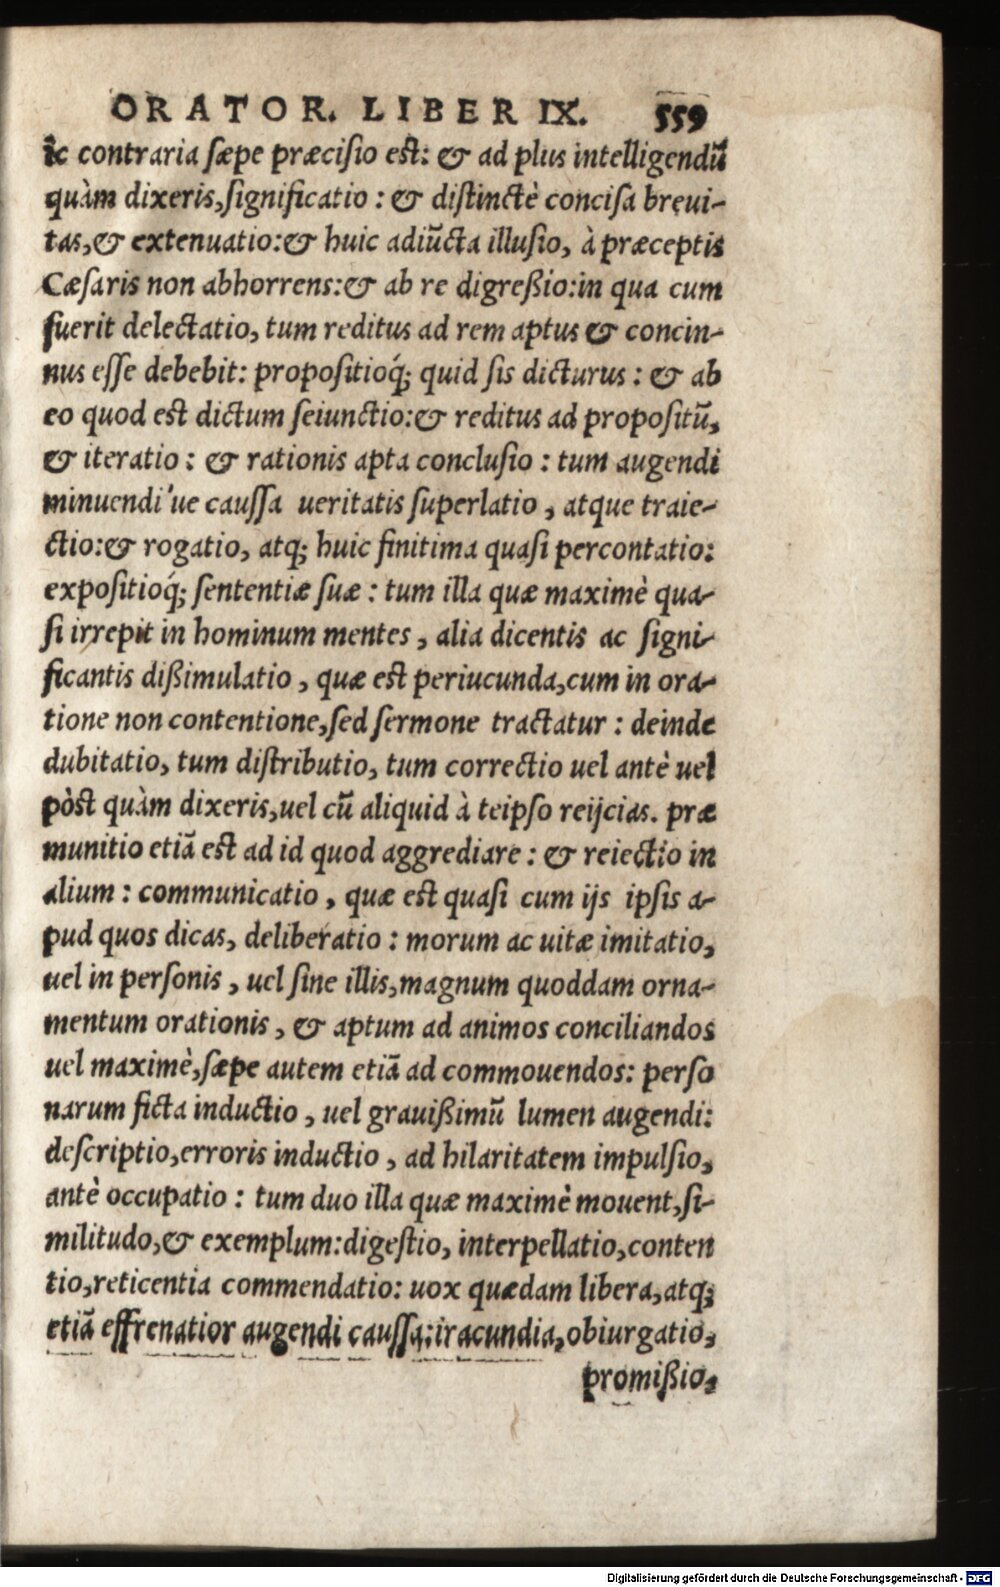 ORATOR. LIBER IX. 559
ic contraria sæpe præcisio est: & ad plus intelligendũ
quàm dixeris, significatio: & distinctè concisa brevi-
tas, & extenuatio: & huic adiũcta illusio, à præceptis
Cæsaris non abhorrens: & ab re digreßio: in qua cum
fuerit delectatio, tum reditus ad rem aptus & concin-
nus esse debebit: propositioq́; quid sis dicturus: & ab
eo quod est dictum seiunctio: & reditus ad propositũ,
& iteratio: & rationis apta conclusio: tum augendi
minuendi'ue caussa ueritatis superlatio, atque traie-
ctio: & rogatio, atq; huic finitima quasi percontatio:
expositioq́; sententiæ suæ: tum illa quæ maximè qua-
si irrepit in hominum mentes, alia dicentis ac signi-
ficantis dißimulatio, quæ est periucunda, cum in ora-
tione non contentione, sed sermone tractatur: deinde
dubitatio, tum distributio, tum correctio uel antè uel
pòst quàm dixeris, uel cũ aliquid à teipso reijcias. præ
munitio etiã est ad id quod aggrediare: & reiectio in
alium: communicatio, quæ est quasi cum ijs ipsis a-
pud quos dicas, deliberatio: morum ac uitæ imitatio,
uel in personis, uel sine illis, magnum quoddam orna-
mentum orationis, & aptum ad animos conciliandos
uel maximè, sæpe autem etiã ad commouendos: perso
narum ficta inductio, uel grauißimũ lumen augendi:
descriptio, erroris inductio, ad hilaritatem impulsio,
antè occupatio: tum duo illa quæ maximè mouent, si-
militudo, & exemplum: digestio, interpellatio, conten
tio, reticentia commendatio: uox quædam libera, atq;
etiã effrenatior augendi caussa: iracundia, obiurgatio,
promißio,
Digitalisierung gefördert durch die Deutsche Forschungsgemeinschaft - DFG